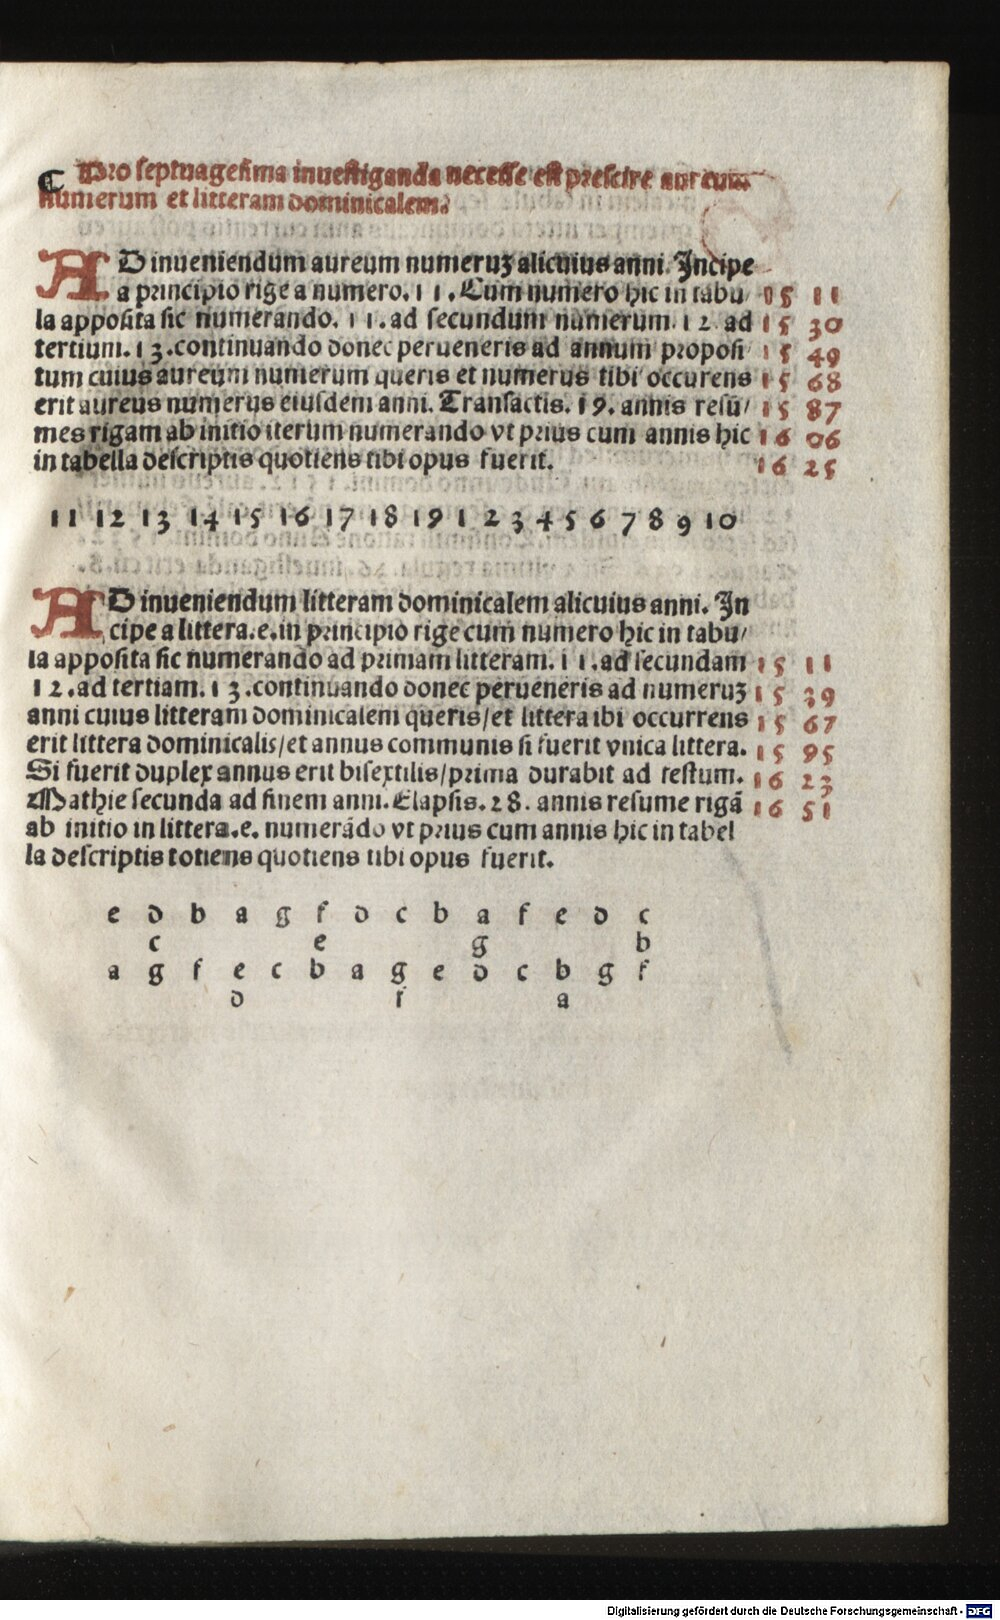 ¶ Pro septuagesima inuestiganda necesse est prescire aureum
numerum et litteram dominicalem.
AD inueniendum aureum numeruʒ alicuius anni. Incipe
a principio rige a numero. 11. Cum numero hic in tabu/ 15 11
la apposita sic numerando. 11. ad secundum numerum. 12 ad 15 30
tertium. 13. continuando donec perueneris ad annum proposi/ 15 49
tum cuius aureum numerum queris et numerus tibi occurens 15 68
erit aureus numerus eiusdem anni. Transactis. 19. annis resū/ 15 87
mes rigam ab initio iterum numerando vt prius cum annis hic 16 06
in tabella descriptis quotiens tibi opus fuerit. 16 25
11 12 13 14 15 16 17 18 19 1 2 3 4 5 6 7 8 9 10
AD inueniendum litteram dominicalem alicuius anni. In
cipe a littera. e. in principio rige cum numero hic in tabu/
la apposita sic numerando ad primam litteram. 11. ad secundam 15 11
12. ad tertiam. 13. continuando donec perueneris ad numeruʒ 15 39
anni cuius litteram dominicalem queris/ et littera ibi occurrens 15 67
erit littera dominicalis/ et annus communis si fuerit vnica littera. 15 95
Si fuerit duplex annus erit bisextilis/ prima durabit ad festum. 16 23
Mathie secunda ad finem anni. Elapsis. 28. annis resume rigā 16 51
ab initio in littera. e. numerādo vt prius cum annis hic in tabel
la descriptis totiens quotiens tibi opus fuerit.
e d b a g f d c b a f e d c
c e g b
a g f e c b a g e d c b g f
d f a
Digitalisierung gefördert durch die Deutsche Forschungsgemeinschaft - DFG